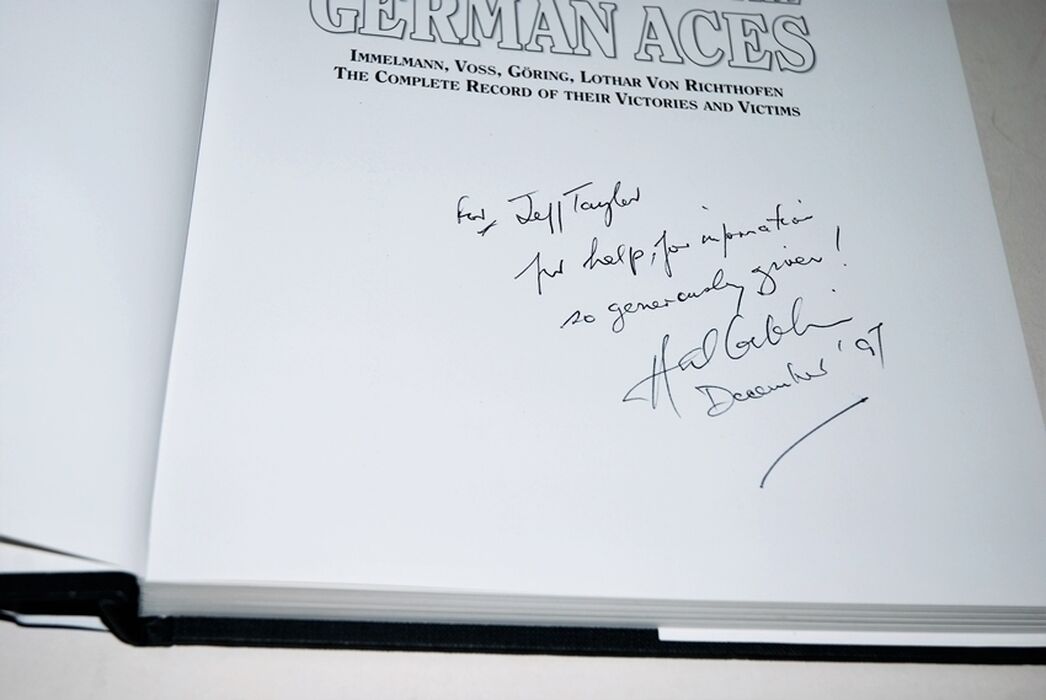 GERMAN ACES
IMMELMANN, VOSS, GÖRING, LOTHAR VON RICHTHOFEN
THE COMPLETE RECORD OF THEIR VICTORIES AND VICTIMS
For Jeff Taylor
for help, for information
so generously given!
Hal Giblin
December '97